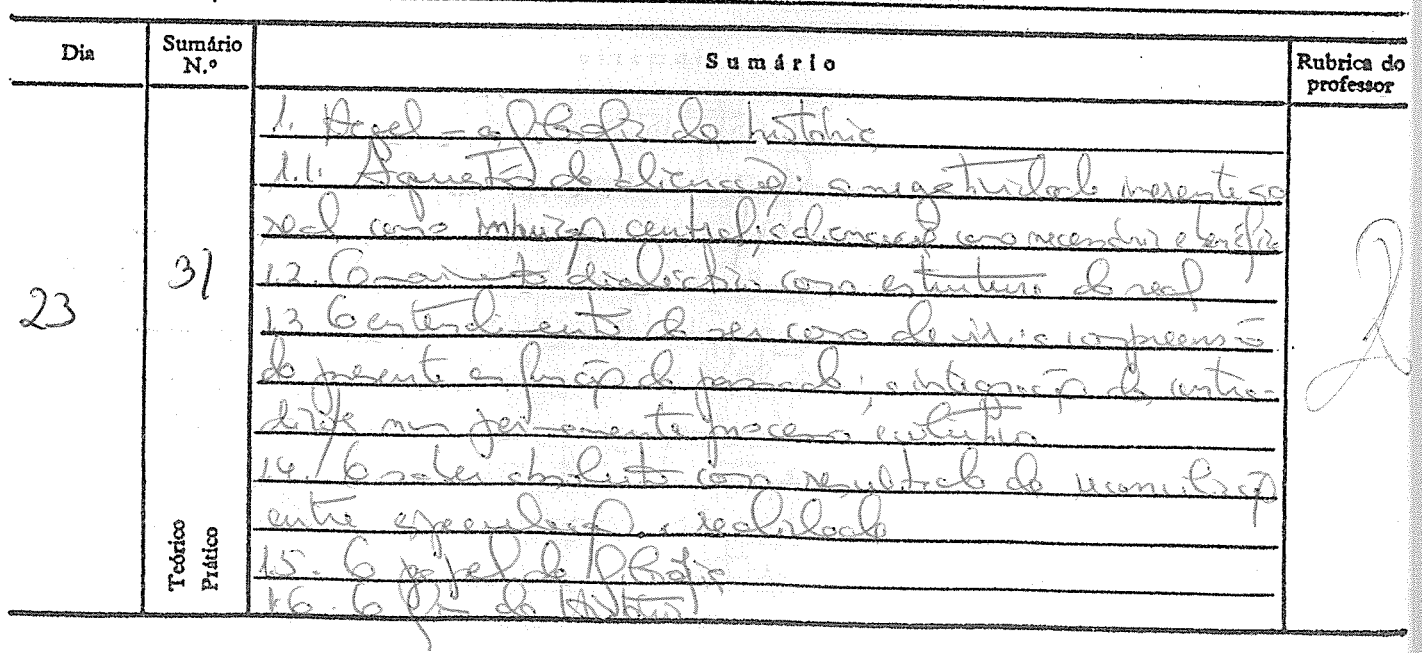 Dia
Sumário N.º
Sumário
Rubrica do professor
23
31
Teórico
Prático
1. Hegel - a filosofia da história
1.1. A questão da alienação: a negatividade inerente ao
real como intuição central; a alienação como necessária e benéfica
1.2. O movimento dialéctico como estrutura do real
1.3 O entendimento do ser como devir: a compreensão
do presente em função do passado; a integração da contra-
dição num permanente processo evolutivo
1.4. O saber absoluto como resultado da reconciliação
entre especulação e realidade
1.5. O papel da filosofia
1.6. O fim da história